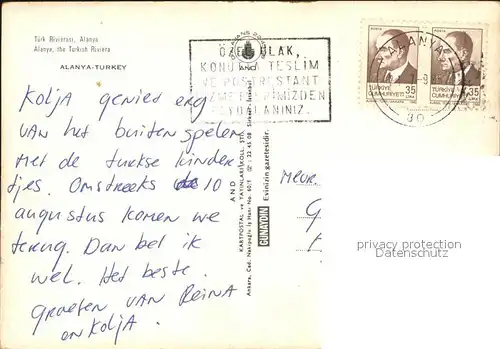 Türk Rivierası, Alanya
Alanya, the Turkish Riviera
ALANYA-TURKEY
Kolja geniet erg
van het buiten spelen
met de turkse kinder
tjes. Omstreeks 10
augustus komen we
terug. Dan bel ik
wel. Het beste.
groeten van Reina
en Kolja.
AND
KARTPOSTAL ve YAYINLARI KOLL. ŞTD.
Ankara, Cad. Nakipoğlu İş Hanı No. 60/1 22 45 08 Sirkeci-İstanbul
GÜNAYDIN Evinizin gazetesidir.
AND
ÖZEL ULAK,
KONUTTA TESLİM
VE POSTRESTANT
HİZMETLERİMİZDEN
ALANYA
POSTA
TÜRKİYE
CUMHURİYETİ
35
LİRA
POSTA
TÜRKİYE
CUMHURİYETİ
35
LİRA
Mevr.
G
privacy protection
Datenschutz